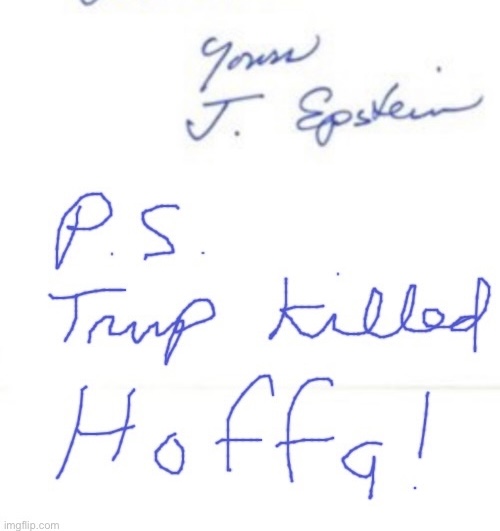 Yours
J. Epstein
P.S.
Trump killed
Hoffa!
imgflip.com